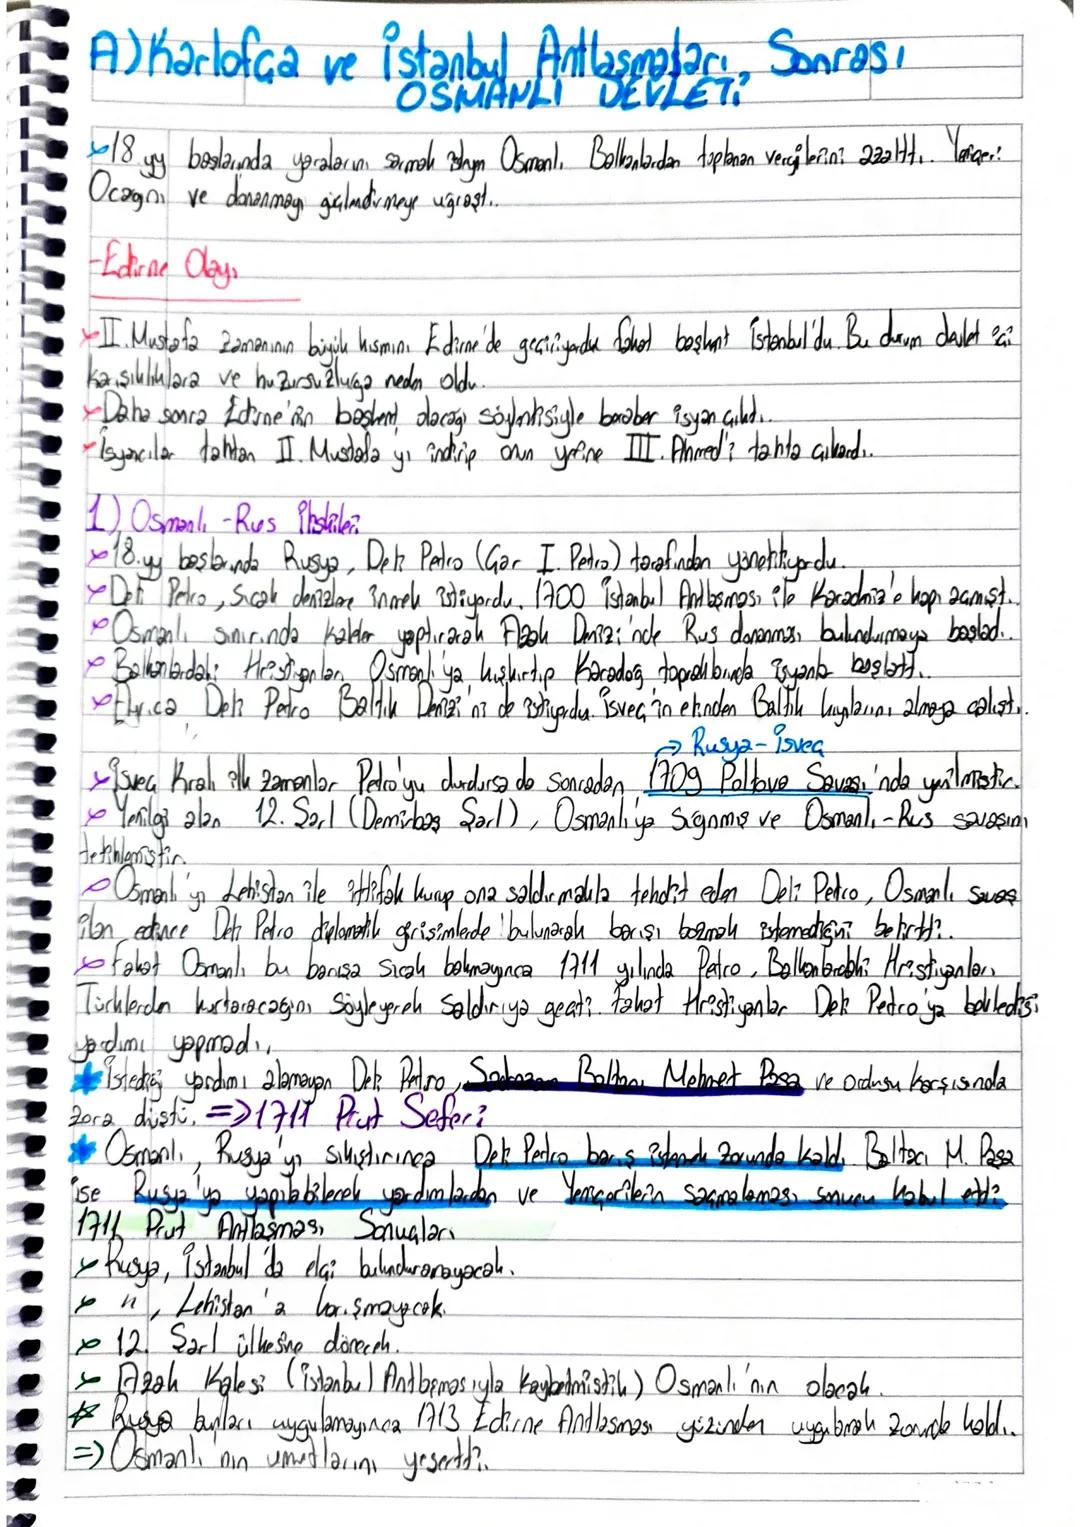 A) Karlofça ve İstanbul Antlaşmaları Sonrası
OSMANLI DEVLETİ
18 yy başlarında yaralarını sarmak isteyen Osmanlı Balkanlardan toplanan vergilerini azalttı. Yeniçeri
Ocağını ve donanmayı güçlendirmeye uğraştı.
-Edirne Olayı
II. Mustafa zamanının büyük kısmını Edirne'de geçiriyordu fakat başkent İstanbul'du. Bu durum devlet içi
karışıklıklara ve huzursuzluğa neden oldu.
Daha sonra Edirne'nin başkent olacağı söylentisiyle beraber isyan çıktı.
İsyancılar tahttan II. Mustafa yı indirip onun yerine III. Ahmed'i tahta çıkardı.
1) Osmanlı -Rus İlişkileri
18.yy başlarında Rusya, Deli Petro (Çar I. Petro) tarafından yönetiliyordu.
Deli Petro, Sıcak denizlere inmek istiyordu. 1700 İstanbul Antlaşması ile Karadeniz'e kapı açmıştı.
Osmanlı sınırında kaleler yaptırarak Azak Denizi'nde Rus donanması bulundurmaya başladı.
Balkanlardaki Hristiyanları Osmanlı'ya kışkırtıp Karadağ topraklarında isyanlar başlattı.
Ayrıca Deli Petro Baltık Denizi'ni de istiyordu. İsveç'in elinden Baltık kıyılarını almaya çalıştı.
→ Rusya-İsveç
İsveç Kralı ilk zamanlar Petro'yu durdursa da sonradan 1709 Poltova Savaşı'nda yenilmiştir.
Yenilgi alan 12. Şarl (Demirbaş Şarl), Osmanlı'ya sığınmış ve Osmanlı-Rus savaşını
tetiklemiştir.
Osmanlı'yı Lehistan ile ittifak kurup ona saldırmakla tehdit eden Deli Petro, Osmanlı savaş
ilan edince Deli Petro diplomatik girişimlerde bulunarak barışı bozmak istemediğini belirtti.
Fakat Osmanlı bu barışa sıcak bakmayınca 1711 yılında Petro, Balkanlardaki Hristiyanları
Türklerden kurtaracağını söyleyerek saldırıya geçti. Fakat Hristiyanlar Deli Pedro'ya beklediği
yardımı yapmadı.
İstediği yardımı alamayan Deli Petro, Sadrazam Baltacı Mehmet Paşa ve ordusu karşısında
zora düştü. => 1711 Prut Seferi
Osmanlı, Rusya'yı sıkıştırınca Deli Petro barış istemek zorunda kaldı. Baltacı M. Paşa
ise Rusya'ya yapılabilecek yardımlardan ve Yeniçerilerin saçmalaması sonucu kabul etti.
1711 Prut Antlaşması Sonuçları
Rusya, İstanbul'da elçi bulunduramayacak.
", Lehistan'a karışmayacak.
12. Şarl ülkesine dönecek.
Azak Kalesi (İstanbul Antlaşmasıyla kaybetmiştik) Osmanlı'nın olacak.
Rusya bunları uygulamayınca 1713 Edirne Antlaşması yüzünden uygulamak zorunda kaldı.
=) Osmanlı'nın umutlarını yeşertti.